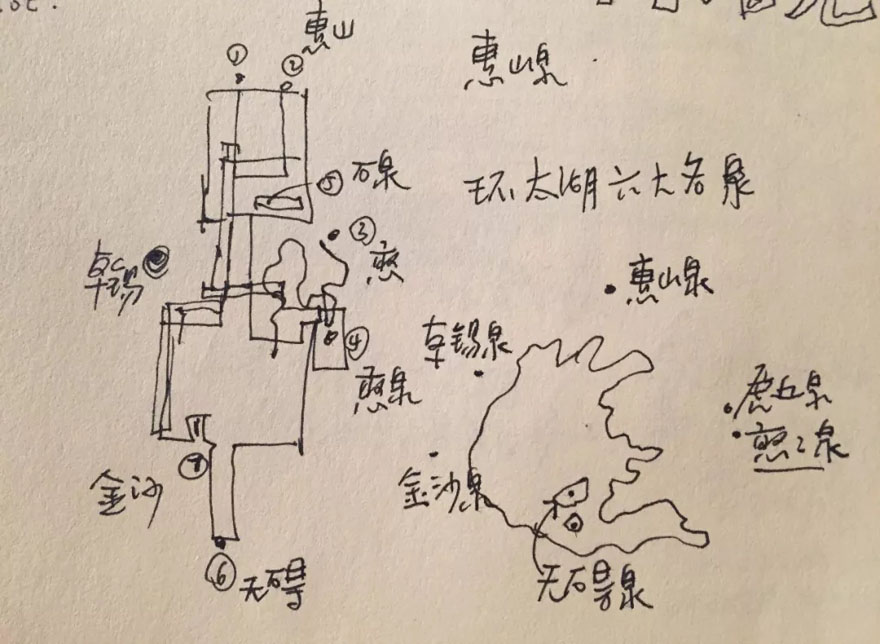 ①
②
惠山
惠山泉
⑤ 石泉
环太湖六大名泉
③
憨
卓锡
惠山泉
④
卓锡泉
憨泉
虎丘泉
憨憨泉
⑦
金沙
金沙泉
⑥
无碍
无碍泉